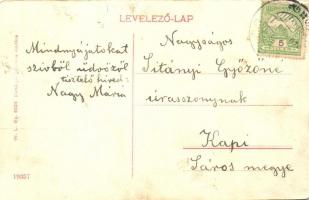 LEVELEZŐ-LAP
Mindnyájatokat
szivből üdvözöl
tisztelő hived:
Nagy Mária
Nagyságos
Sitányi Győzőné
úrasszonynak
Kapi
Sáros megye
19057
5